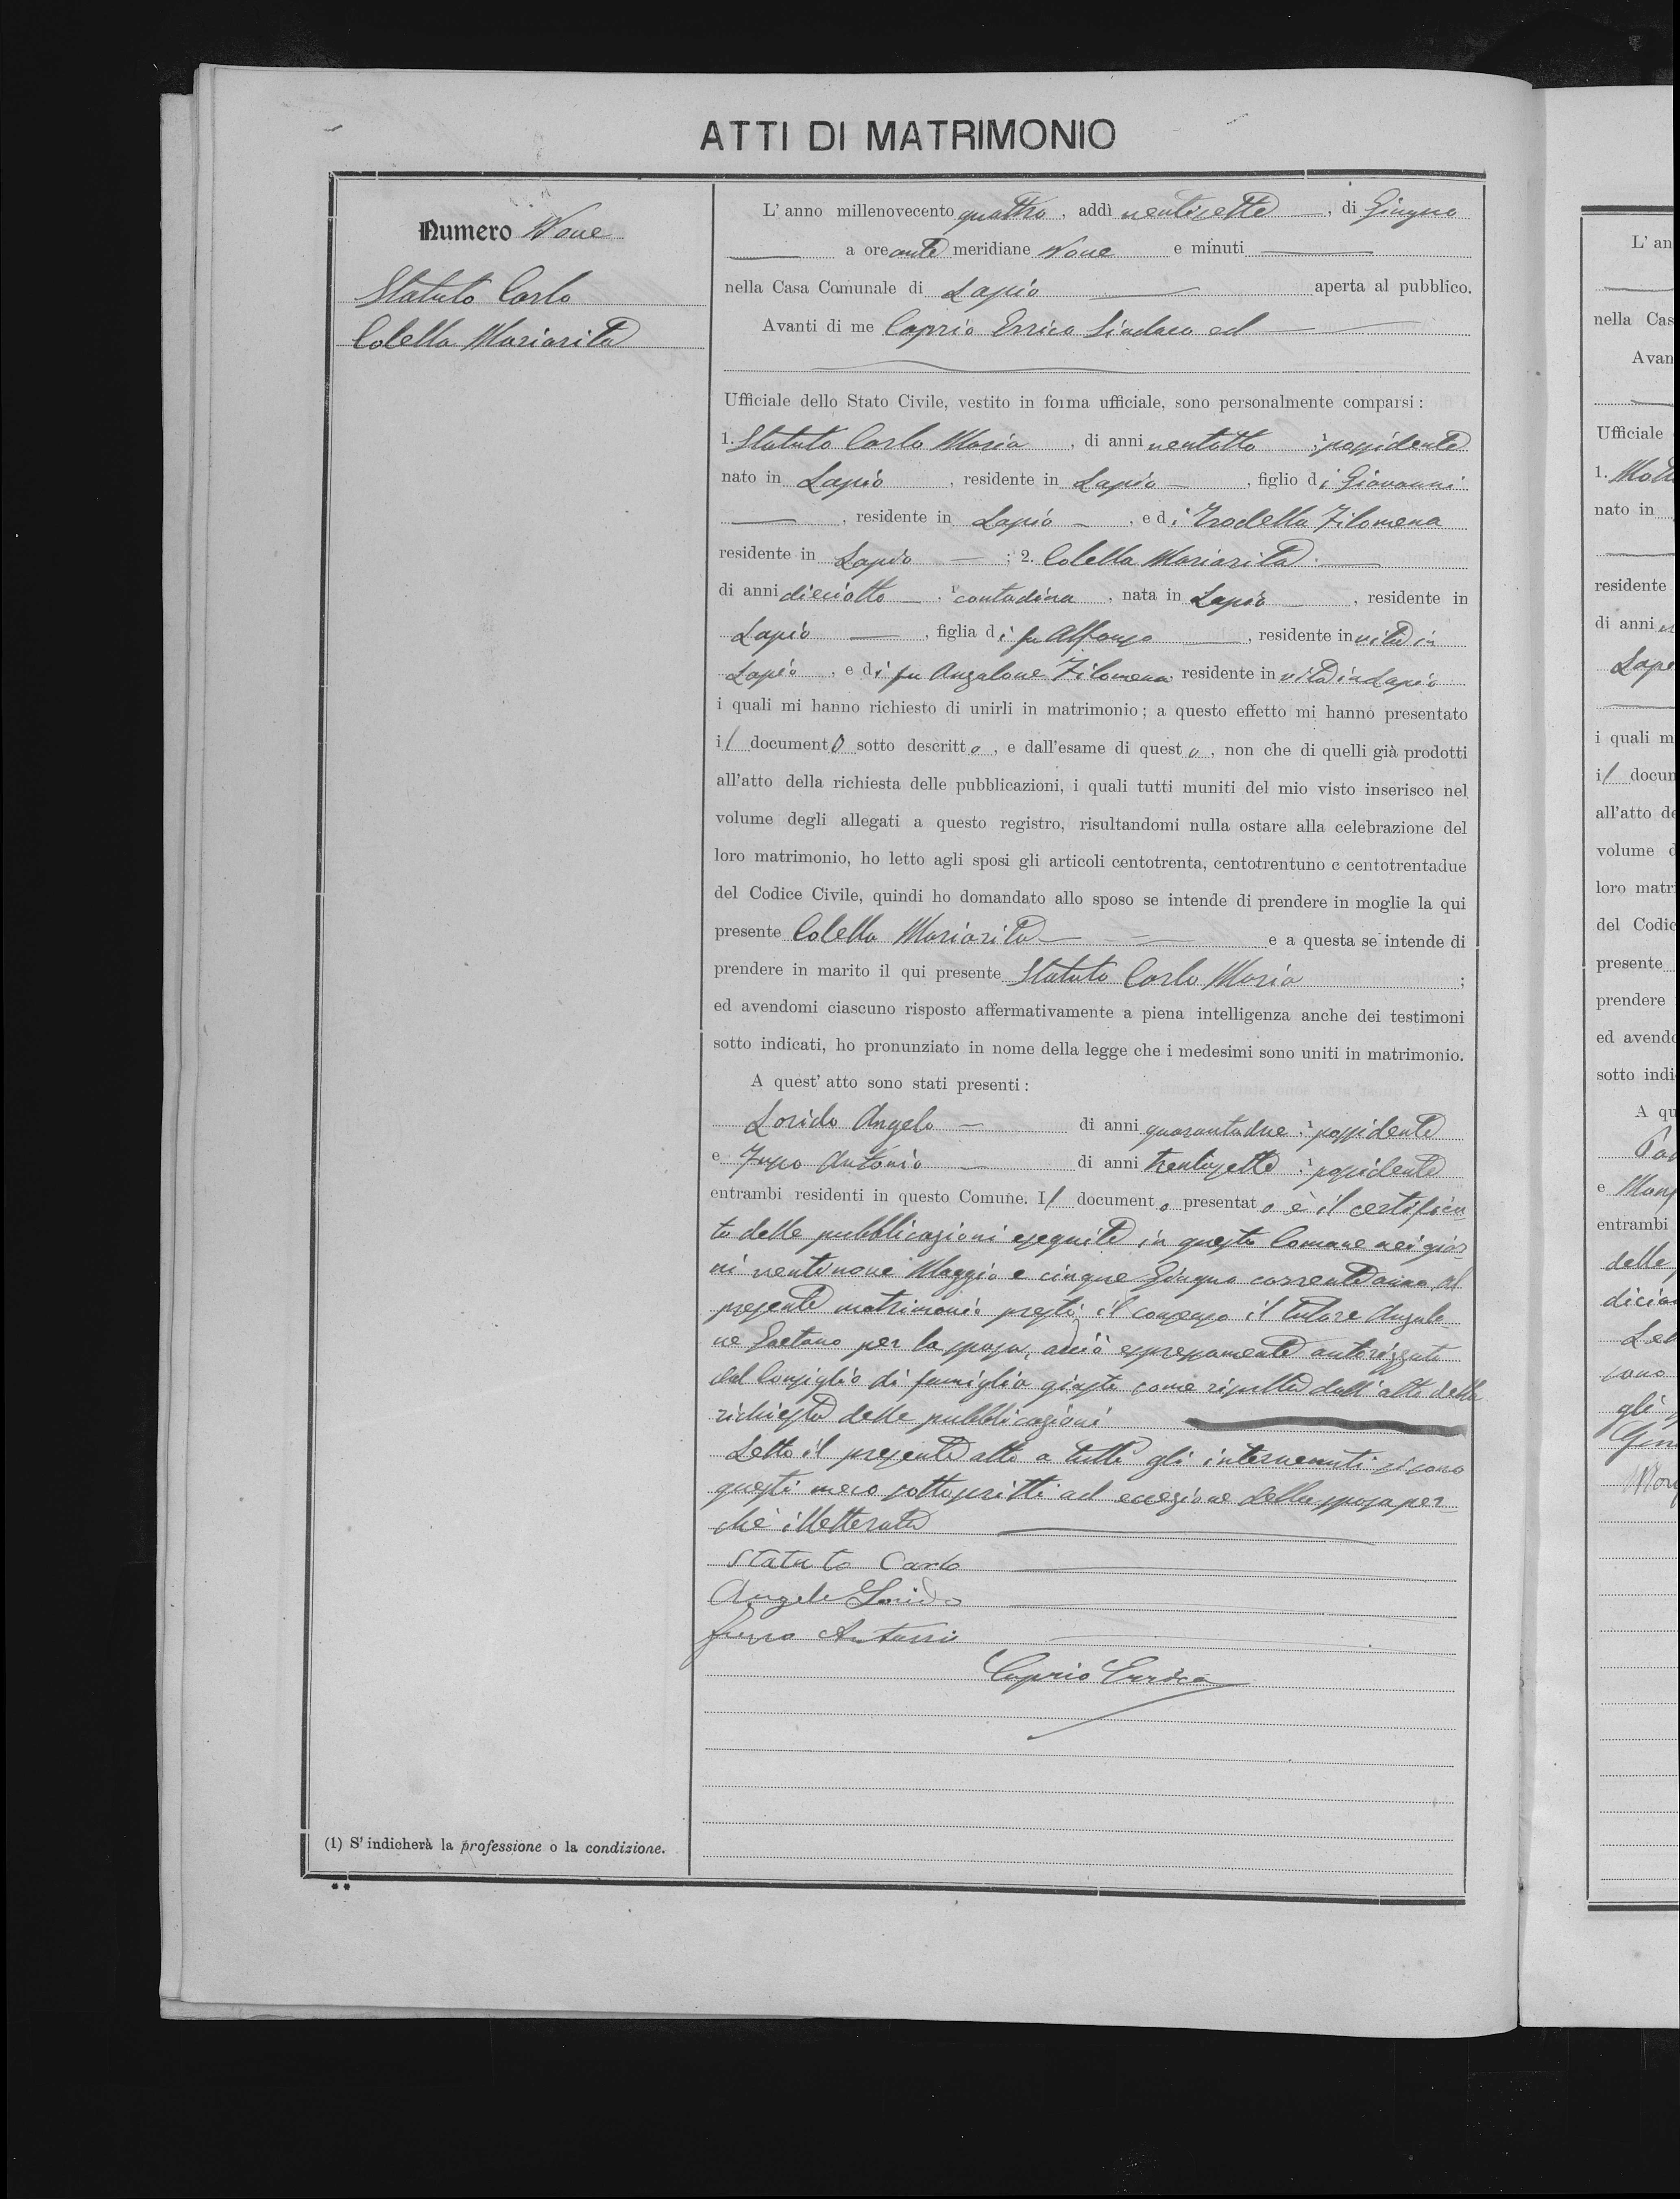 ATTI DI MATRIMONIO
Numero Nove
Statuto Carlo
Colella Mariarita
L' anno millenovecento quattro, addì ventisette, di Giugno
a ore ante meridiane Nove e minuti
nella Casa Comunale di Lapio aperta al pubblico.
Avanti di me Caprio Errico Sindaco ed
Ufficiale dello Stato Civile, vestito in forma ufficiale, sono personalmente comparsi:
1. Statuto Carlo Maria, di anni ventotto, 1 possidente
nato in Lapio, residente in Lapio, figlio di Giovanni
, residente in Lapio, e di Filomena
residente in Lapio; 2. Colella Mariarita
di anni dieciotto, 1 contadina, nata in Lapio, residente in
Lapio, figlia di fu Alfonso, residente in vita in
Lapio, e di fu Anzalone Filomena residente in vita in Lapio
i quali mi hanno richiesto di unirli in matrimonio; a questo effetto mi hanno presentato
il documento sotto descritto, e dall'esame di questo, non che di quelli già prodotti
all'atto della richiesta delle pubblicazioni, i quali tutti muniti del mio visto inserisco nel
volume degli allegati a questo registro, risultandomi nulla ostare alla celebrazione del
loro matrimonio, ho letto agli sposi gli articoli centotrenta, centotrentuno e centotrentadue
del Codice Civile, quindi ho domandato allo sposo se intende di prendere in moglie la qui
presente Colella Mariarita e a questa se intende di
prendere in marito il qui presente Statuto Carlo Maria;
ed avendomi ciascuno risposto affermativamente a piena intelligenza anche dei testimoni
sotto indicati, ho pronunziato in nome della legge che i medesimi sono uniti in matrimonio.
A quest' atto sono stati presenti:
Lorido Angelo di anni quarantadue, 1 possidente
e Antonio di anni trentasette, 1 possidente
entrambi residenti in questo Comune. Il documento presentato è il certifica-
to delle pubblicazioni eseguite in questo Comune nei gior-
ni ventinove Maggio e cinque Giugno corrente anno. Al
presente matrimonio prestò il consenso il tutore Anzalo-
ne Gaetano per la sposa, acciò espressamente autorizzato
dal Consiglio di famiglia giusta come risulta dall'atto della
richiesta delle pubblicazioni
Letto il presente atto a tutti gli intervenuti si sono
questi meco sottoscritti ad eccezione della sposa per-
chè illetterata
Statuto Carlo
Angelo Lorido
Antonio
Caprio Errico
(1) S' indicherà la professione o la condizione.
**
L' an
nella Cas
Avan
Ufficiale
1.
nato in
residente
di anni
i quali m
il docum
all'atto de
volume d
loro matr
del Codic
presente
prendere
ed avendo
sotto indi
A qu
e
entrambi
delle
sono
gli